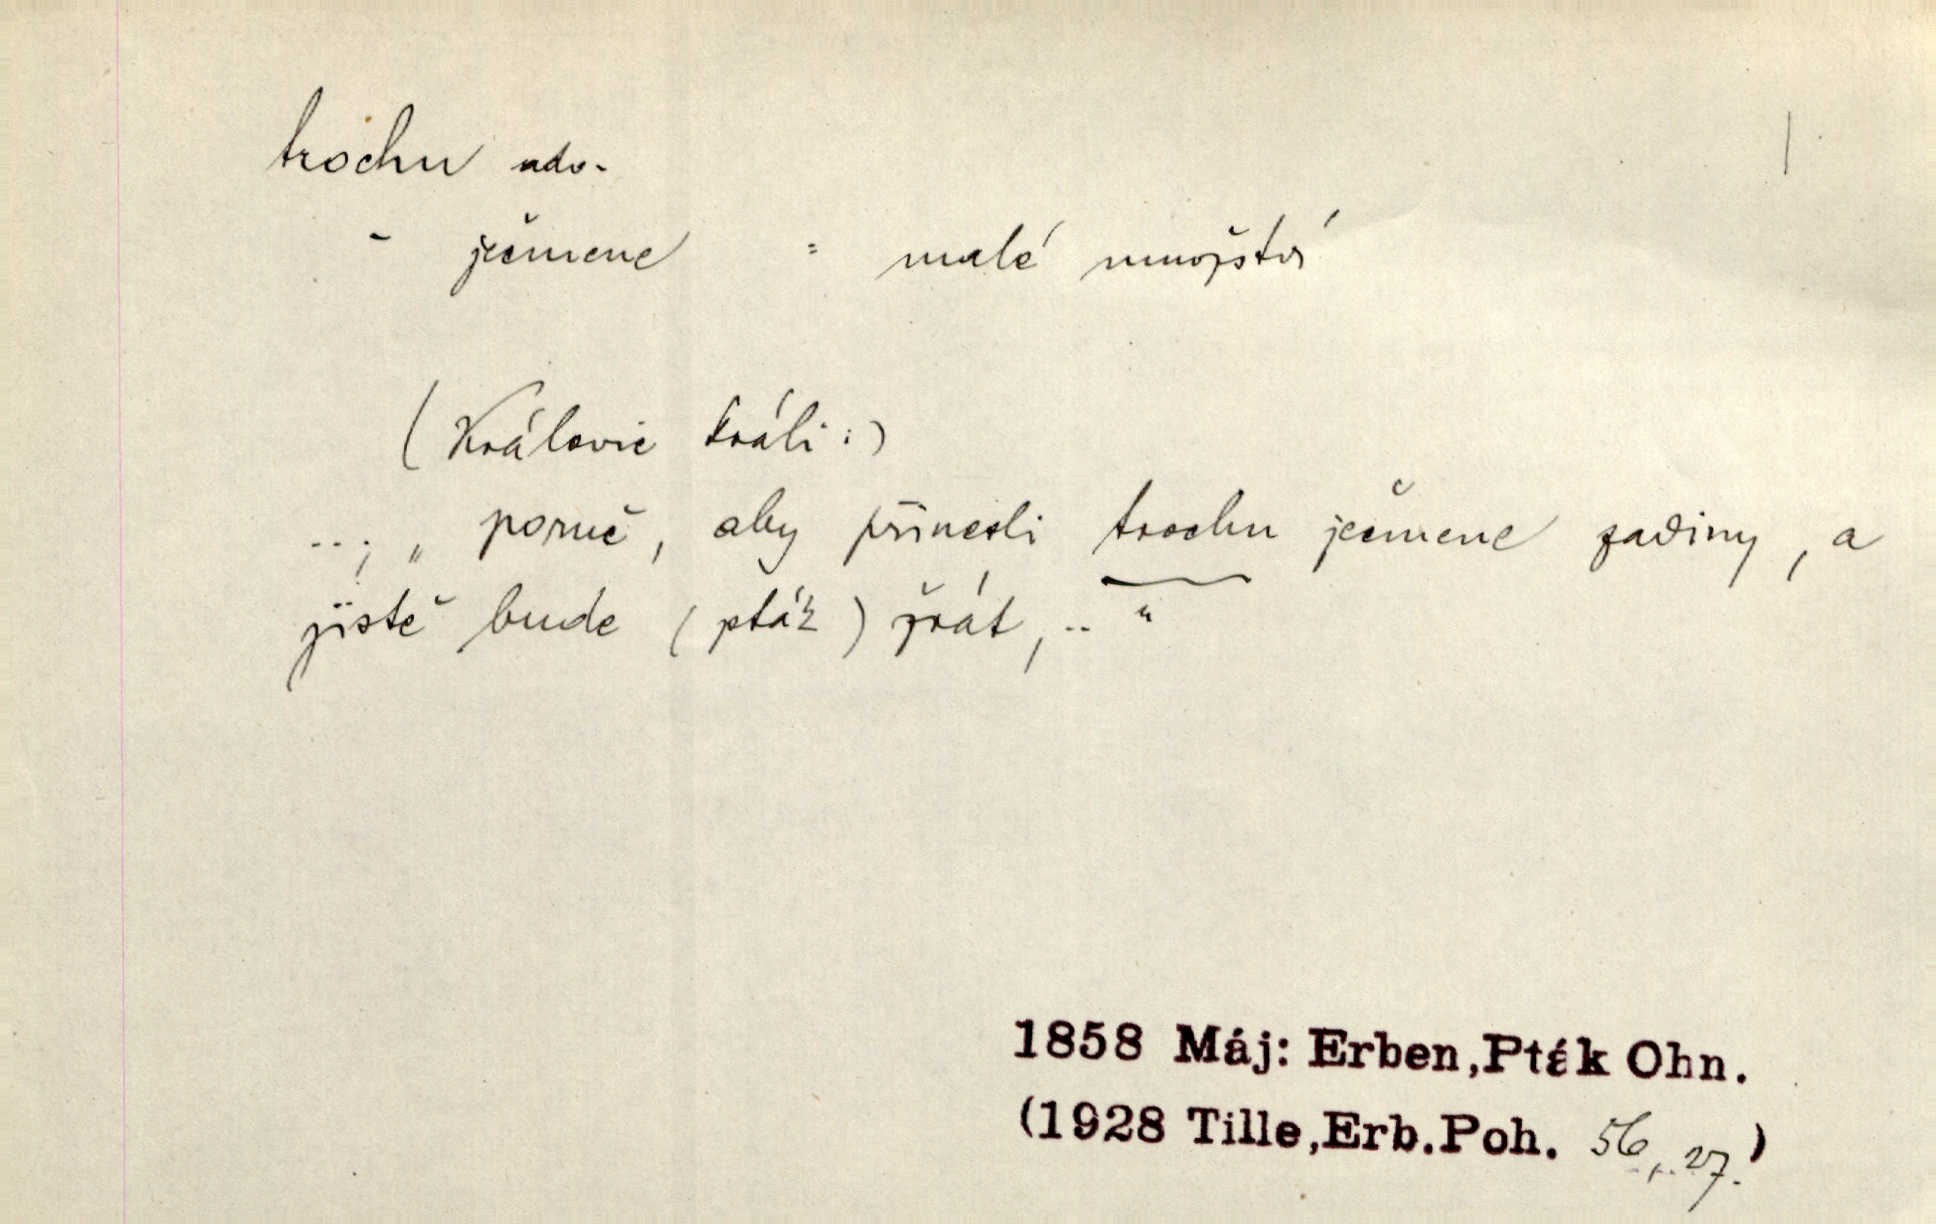 trochu adv.
- ječmene = malé množství
(Králevic králi:)
..., „poruč, aby přinesli trochu ječmene zadiny, a
jistě bude (pták) žrát, .. “
1858 Máj: Erben,Pták Ohn.
(1928 Tille,Erb.Poh. 56, 27.)